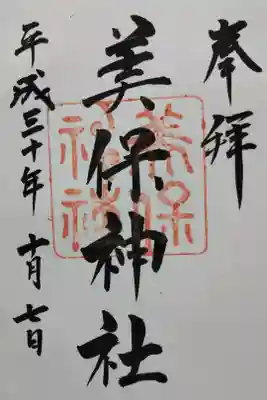 奉拝
美保神社
美保
神社
平成三十年 十月七日